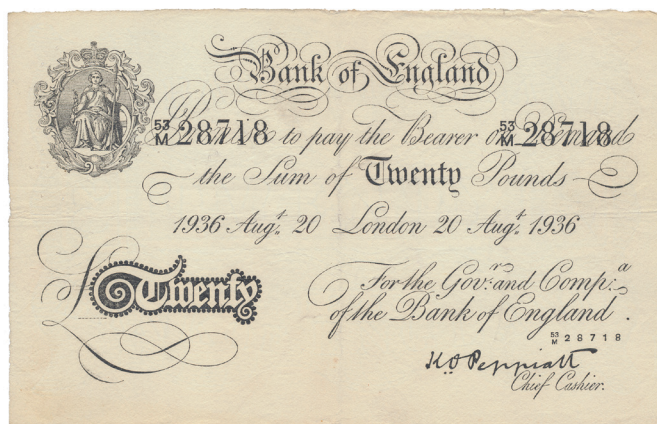 Bank of England
53/M 28718 Promise to pay the Bearer on Demand 53/M 28718
the Sum of Twenty Pounds
1936 Augt. 20 London 20 Augt. 1936
For the Govr. and Compa.
£ Twenty
of the Bank of England.
53/M 28718
K.O. Peppiatt
Chief Cashier.